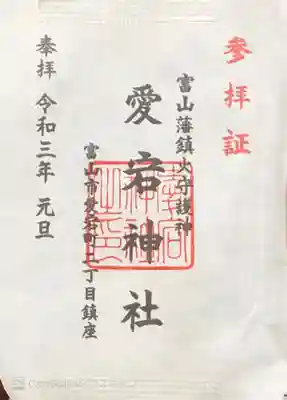 参拝証
富山藩鎮火守護神
愛宕神社
富山市愛宕町二丁目鎮座
奉拝 令和三年 元旦